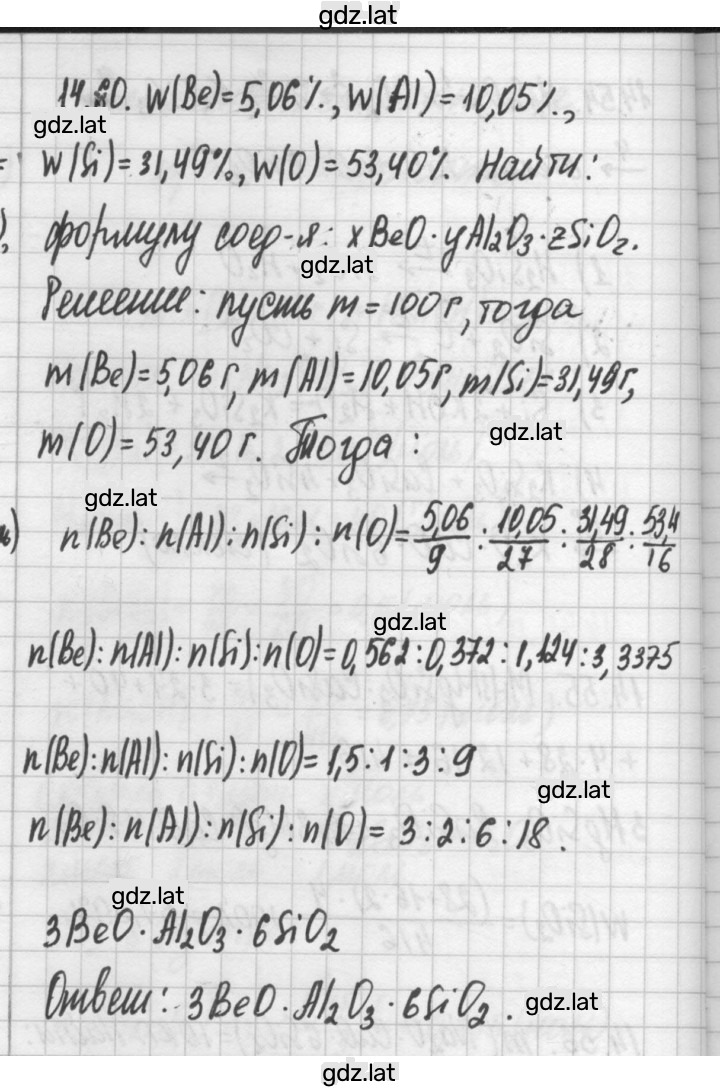 gdz.lat
14.60. W(Be)=5,06%, W(Al)=10,05%,
gdz.lat
W(Si)=31,49%, W(O)=53,40%. Найти:
формулу соед-я: xBeO·yAl₂O₃·zSiO₂.
gdz.lat
Решение: пусть m=100г, тогда
m(Be)=5,06г, m(Al)=10,05г, m(Si)=31,49г,
m(O)=53,40г. Тогда:
gdz.lat
gdz.lat
n(Be):n(Al):n(Si):n(O)=5,06/9:10,05/27:31,49/28:53,4/16
gdz.lat
n(Be):n(Al):n(Si):n(O)=0,562:0,372:1,124:3,3375
n(Be):n(Al):n(Si):n(O)=1,5:1:3:9
gdz.lat
n(Be):n(Al):n(Si):n(O)=3:2:6:18.
gdz.lat
3BeO·Al₂O₃·6SiO₂
Ответ: 3BeO·Al₂O₃·6SiO₂.
gdz.lat
gdz.lat